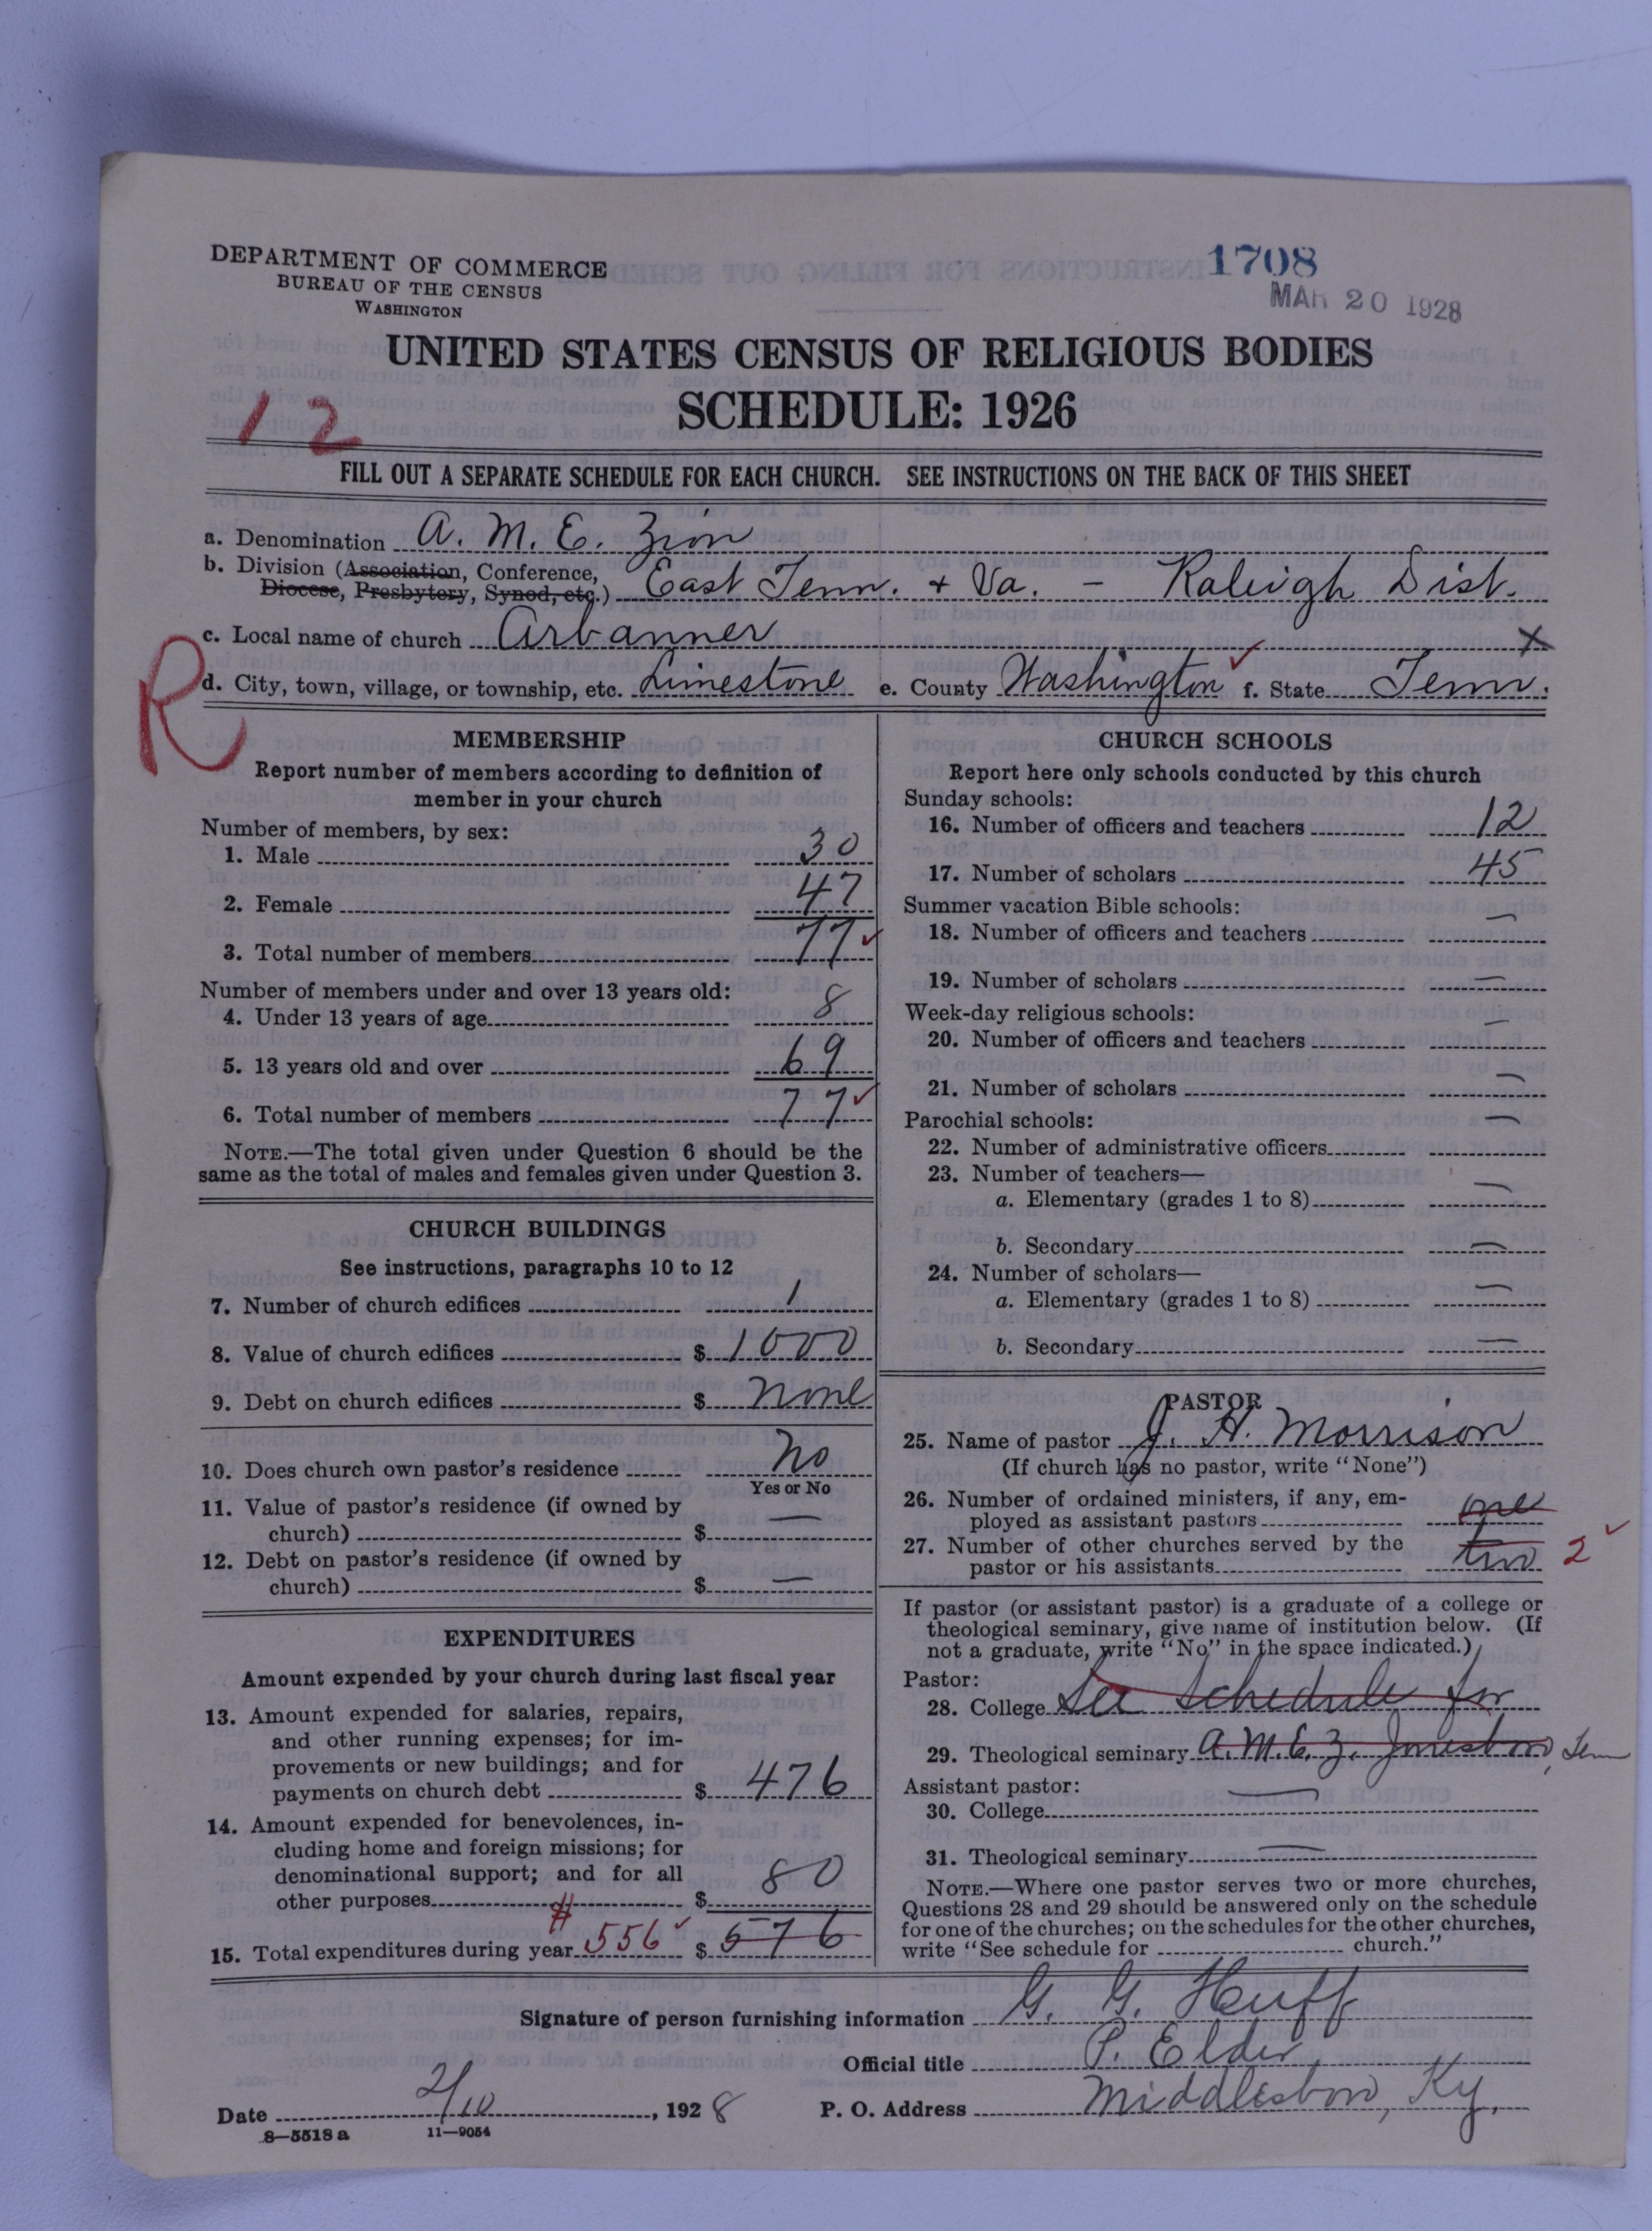 DEPARTMENT OF COMMERCE
BUREAU OF THE CENSUS
WASHINGTON
1708
MAR 20 1928
UNITED STATES CENSUS OF RELIGIOUS BODIES
SCHEDULE: 1926
12
FILL OUT A SEPARATE SCHEDULE FOR EACH CHURCH. SEE INSTRUCTIONS ON THE BACK OF THIS SHEET
a. Denomination A. M. E. Zion
b. Division (Association, Conference, Diocese, Presbytery, Synod, etc.) East Tenn. + Va. - Raleigh Dist.
c. Local name of church Arbanner X
R
d. City, town, village, or township, etc. Limestone e. County Washington ✓ f. State Tenn.
MEMBERSHIP
Report number of members according to definition of
member in your church
Number of members, by sex:
1. Male 30
2. Female 47
3. Total number of members 77 ✓
Number of members under and over 13 years old:
4. Under 13 years of age 8
5. 13 years old and over 69
6. Total number of members 77 ✓
NOTE.—The total given under Question 6 should be the
same as the total of males and females given under Question 3.
CHURCH BUILDINGS
See instructions, paragraphs 10 to 12
7. Number of church edifices 1
8. Value of church edifices $ 1000
9. Debt on church edifices $ none
10. Does church own pastor's residence No
Yes or No
11. Value of pastor's residence (if owned by
church) $ —
12. Debt on pastor's residence (if owned by
church) $ —
EXPENDITURES
Amount expended by your church during last fiscal year
13. Amount expended for salaries, repairs,
and other running expenses; for im-
provements or new buildings; and for
payments on church debt $ 476
14. Amount expended for benevolences, in-
cluding home and foreign missions; for
denominational support; and for all
other purposes $ 80
15. Total expenditures during year $ 556 ✓ $ 576
CHURCH SCHOOLS
Report here only schools conducted by this church
Sunday schools:
16. Number of officers and teachers 12
17. Number of scholars 45
Summer vacation Bible schools:
18. Number of officers and teachers —
19. Number of scholars —
Week-day religious schools:
20. Number of officers and teachers —
21. Number of scholars —
Parochial schools:
22. Number of administrative officers —
23. Number of teachers—
a. Elementary (grades 1 to 8) —
b. Secondary —
24. Number of scholars—
a. Elementary (grades 1 to 8) —
b. Secondary —
PASTOR
25. Name of pastor J. H. Morrison
(If church has no pastor, write "None")
26. Number of ordained ministers, if any, em-
ployed as assistant pastors one
27. Number of other churches served by the
pastor or his assistants two 2 ✓
If pastor (or assistant pastor) is a graduate of a college or
theological seminary, give name of institution below. (If
not a graduate, write "No" in the space indicated.)
Pastor:
28. College See Schedule for
29. Theological seminary A. M. E. Z. Jonesboro, Tenn
Assistant pastor:
30. College —
31. Theological seminary —
NOTE.—Where one pastor serves two or more churches,
Questions 28 and 29 should be answered only on the schedule
for one of the churches; on the schedules for the other churches,
write "See schedule for ---------- church."
Signature of person furnishing information G. G. Huff
Official title P. Elder
Date 2/10, 1928 P. O. Address Middlesboro, Ky.
8—5518 a 11—9054